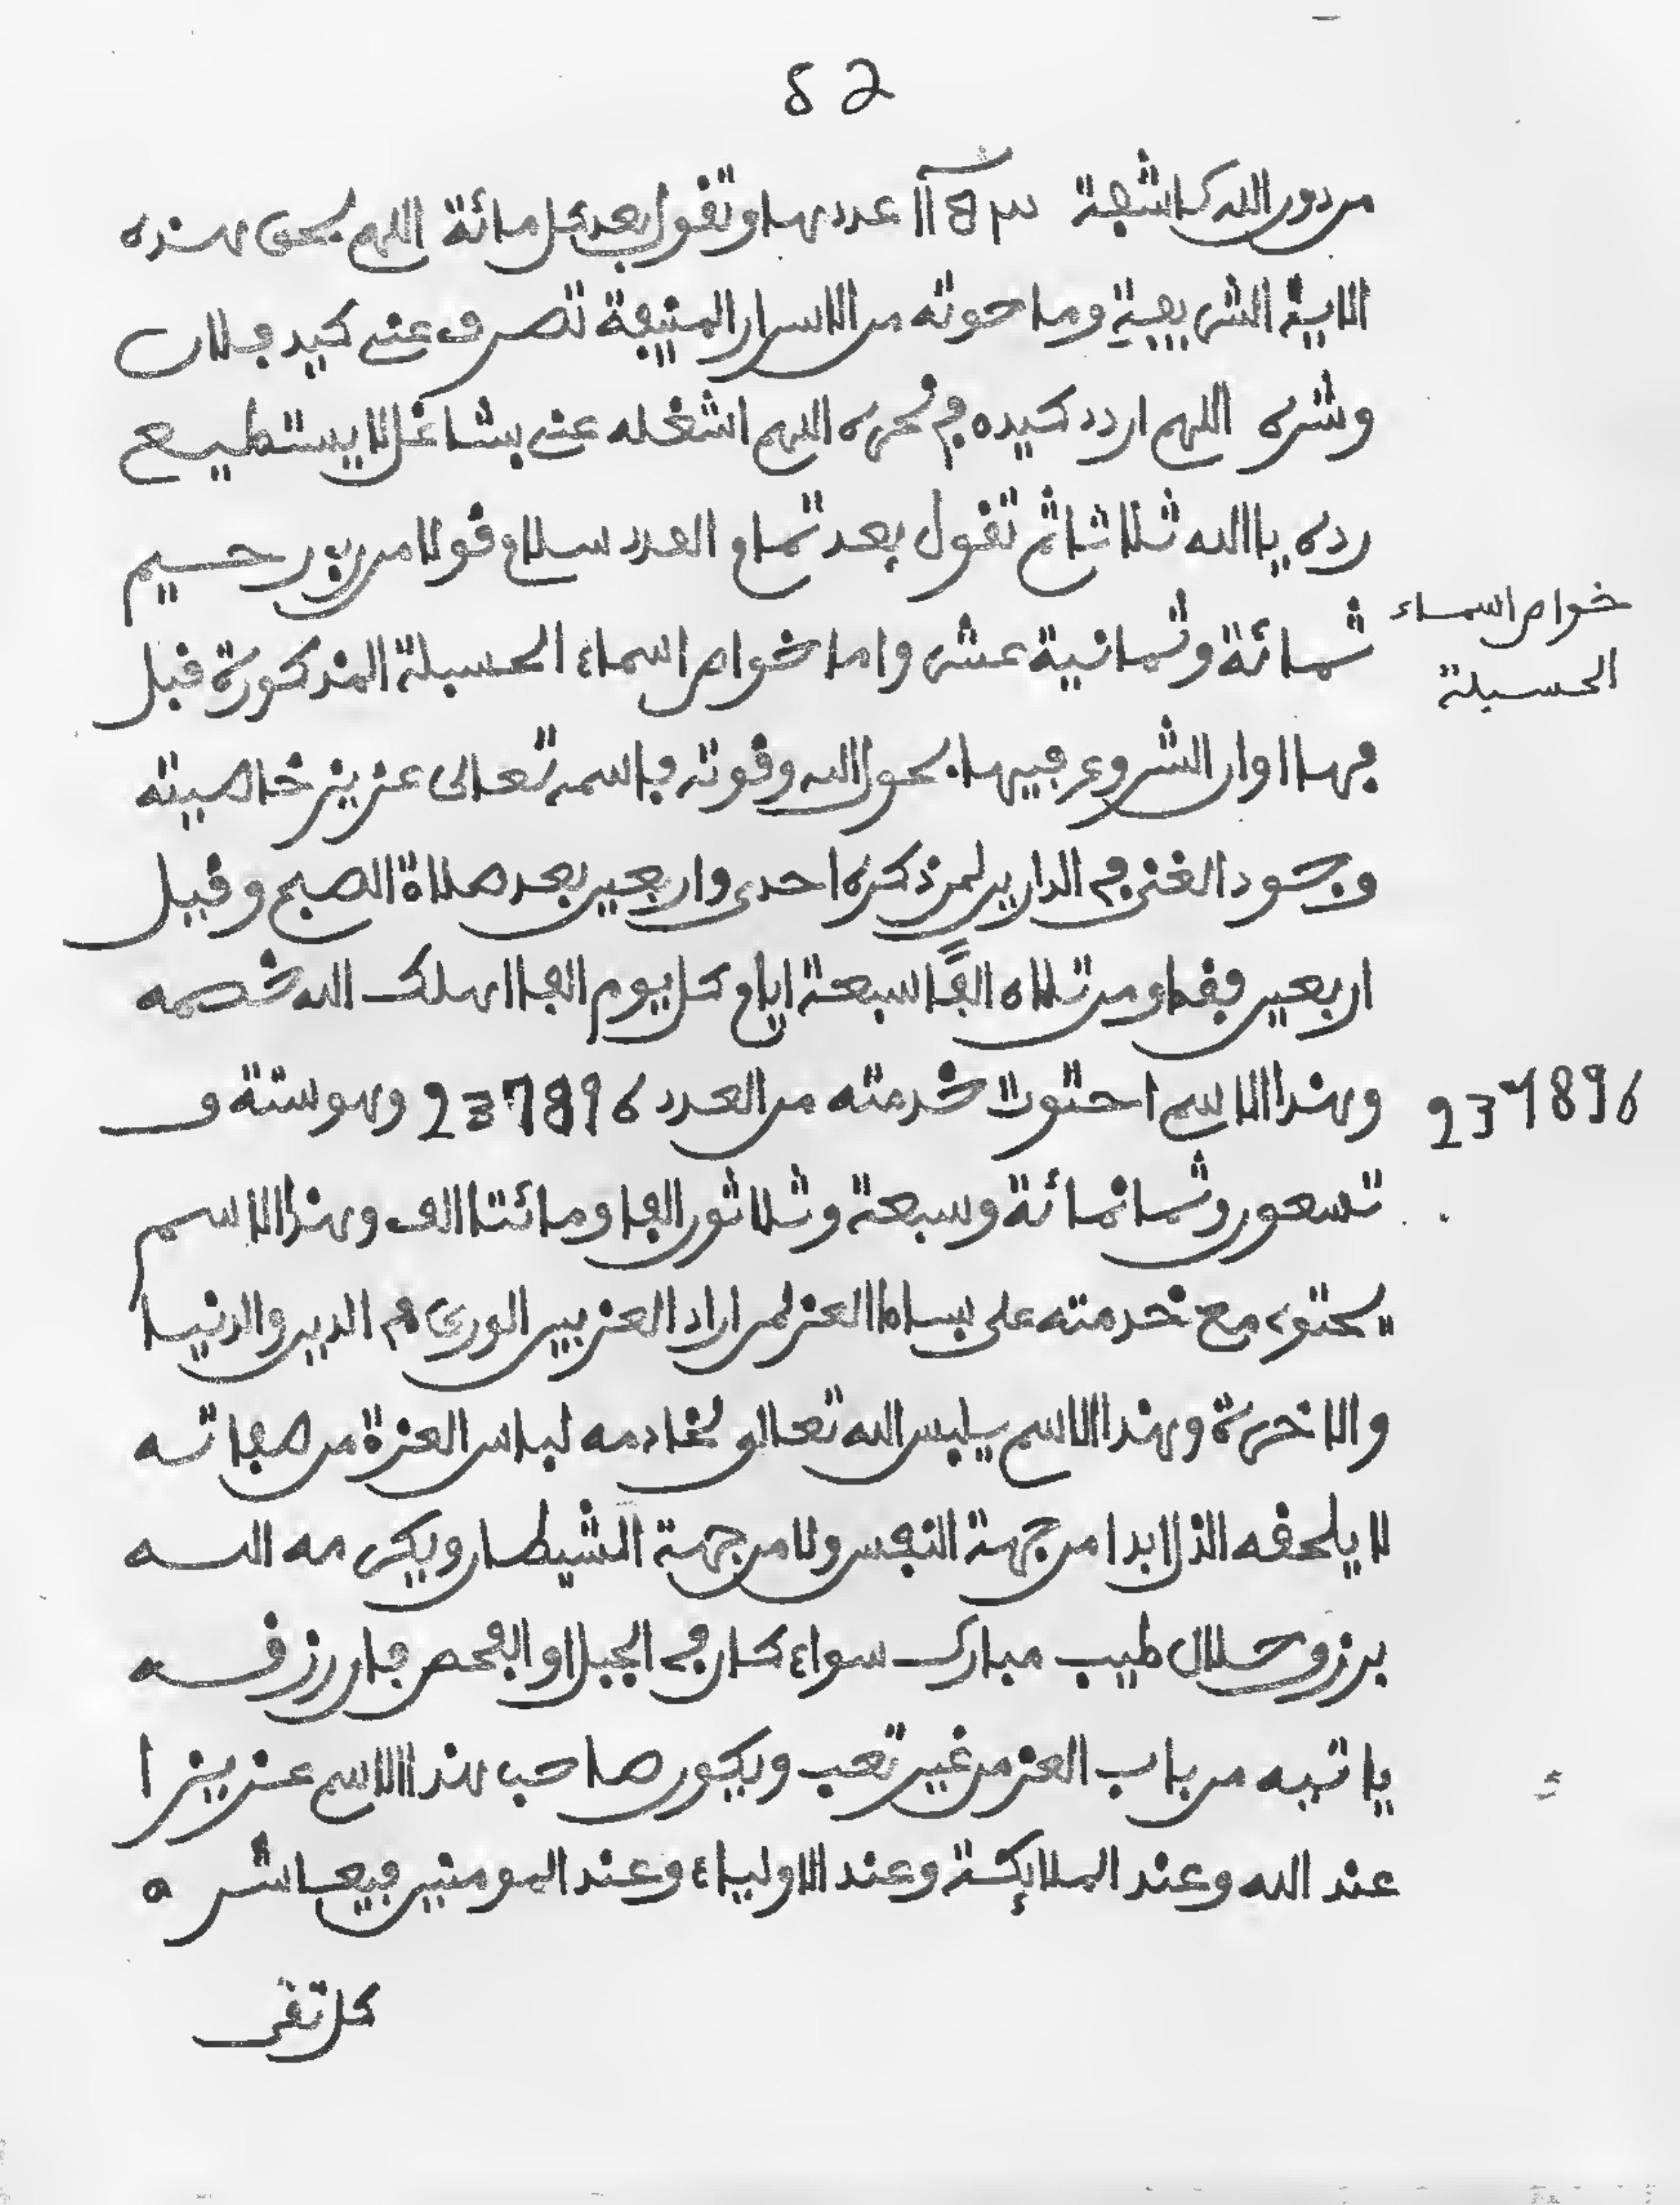 82
من دون الله كاشفة عددها وتقول بعد كل مائة اللهم بحق هذه
الاية الشريفة وما حوته من الاسرار المنيفة تصرف عني كيد فلان
وشره اللهم اردد كيده في نحره اللهم اشغله عني بشاغل لا يستطيع
رده يا الله ثلاثا ثم تقول بعد تمام العدد سلام قولا من رب رحيم
ثمائة وثمانية عشر واما خواص اسماء الحسبلة المذكورة قبل
خواص اسماء
الحسبلة
فهاا وان الشروع فيها بحول الله وقوته فاسمه تعالى عزيز خاصيته
وجود الغنى في الدارين لمن ذكره احدى واربعين بعد صلاة الصبح وقيل
اربعين فقط ومن تلاه الفًا سبعة ايام كل يوم الفا اهلك الله خصمه
وهذا الاسم احتوت خدمته من العدد 237896 وهو ستة و
237896
تسعون وثمانمائة وسبعة وثلاثون الفا ومائتا الف وهذا الاسم
يحتوي مع خدمته على بساط العز لمن اراد العز بين الورى في الدين والدنيا
والاخرة وهذا الاسم يلبس الله تعالى لخادمه لباس العزة من صفاته
لا يلحقه الذل ابدا من جهة النفس ولا من جهة الشيطان ويكرمه الله
برزق حلال طيب مبارك سواء كان في الجبل او الفحص فان رزقه
ياتيه من باب العز من غير تعب ويكون صاحب هذا الاسم عزيزا
عند الله وعند الملايكة وعند الاولياء وعند المومنين فيعاشره
كل تقي